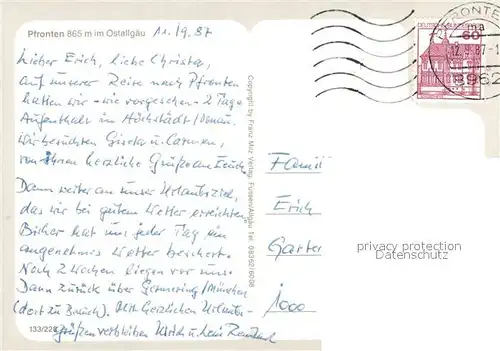 Pfronten 865 m im Ostallgäu
11./9.87
Lieber Erich, liebe Christa,
auf unserer Reise nach Pfronten
hatten wir - wie vorgesehen - 2 Tage
Aufenthalt in Höchstädt/Donau.
Wir besuchten Gisela u. Carmen,
von Ihnen herzliche Grüße an Euch.
Dann weiter an unser Urlaubsziel,
das wir bei gutem Wetter erreichten.
Bisher hat uns jeder Tag ein
angenehmes Wetter beschert.
Noch 2 Wochen liegen vor uns.
Dann zurück über Germering/München
(dort zu Besuch). Mit herzlichen Urlaubs-
grüßen verbleiben Ulrich u.
133/228
Copyright by Franz Milz Verlag, Füssen/Allgäu Tel. 08362/6208
DEUTSCHE BUNDESPOST
60
12.9.87-1
8962
Famili
Erich
Garter
1000
privacy protection
Datenschutz